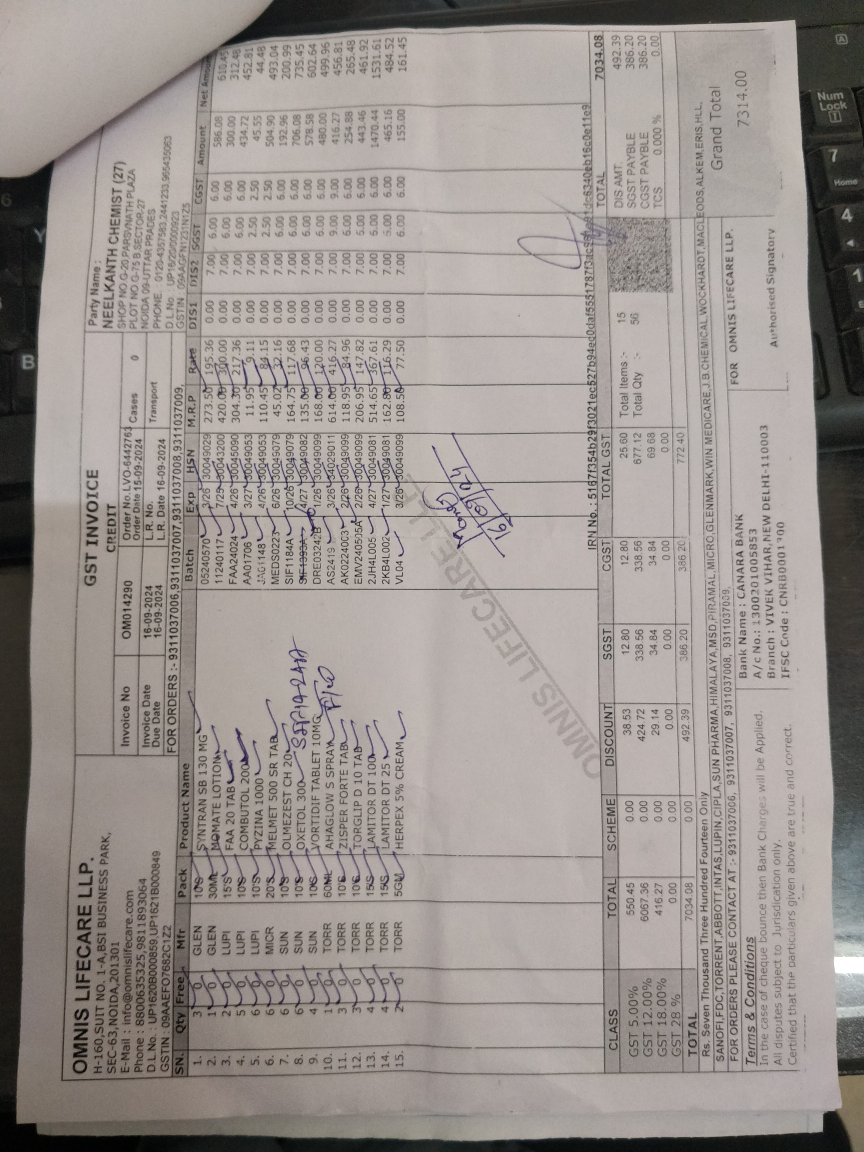 GST INVOICE
CREDIT
OMNIS LIFECARE LLP.
H-160,SUIT NO. 1-A,BSI BUSINESS PARK,
SEC-63,NOIDA,201301
E-Mail : info@omnislifecare.com
Phone : 8800635325,9811893064
D.L.No. : UP1620B000859,UP1621B000849
GSTIN : 09AAEFO7682C1Z2
Invoice No OM014290 Order No.LVO-6442763
Order Date 15-09-2024 Cases 0
Invoice Date 16-09-2024 L.R. No. Transport
Due Date 16-09-2024 L.R. Date 16-09-2024
FOR ORDERS :- 9311037006,9311037007,9311037008,9311037009,
Party Name :
NEELKANTH CHEMIST (27)
SHOP NO.G-20 PARSVNATH PLAZA
PLOT NO.G-75 B,SECTOR-27
NOIDA 09-UTTAR PRADES
PHONE. 0120-4357583,2441233,965435063
SN. Qty Free Mfr Pack Product Name Batch Exp HSN M.R.P Rate DIS1 DIS2 SGST CGST Amount Net Amount
1. 3 0 GLEN 10'S SYNTRAN SB 130 MG 05240570 3/26 30049029 273.50 195.36 0.00 7.00 6.00 6.00 586.08 610.45
2. 1 0 GLEN 30ML MOMATE LOTION 11240117 7/25 30043200 420.00 300.00 0.00 7.00 6.00 6.00 300.00 312.48
3. 2 0 LUPI 15'S FAA 20 TAB FAA24024 4/26 30045090 304.30 217.36 0.00 7.00 6.00 6.00 434.72 452.81
4. 5 0 LUPI 10'S COMBUTOL 200 AA01706 3/27 30049053 11.95 9.11 0.00 7.00 2.50 2.50 45.55 44.48
5. 6 0 LUPI 10'S PYZINA 1000 JA01148 4/26 30049053 110.45 84.15 0.00 7.00 2.50 2.50 504.90 493.04
6. 6 0 MICR 20'S MELMET 500 SR TAB MEDS0223 6/26 30049079 45.02 32.16 0.00 7.00 6.00 6.00 192.96 200.99
7. 6 0 SUN 10'S OLMEZEST CH 20 SIF1184A 10/26 30049079 164.75 117.68 0.00 7.00 6.00 6.00 706.08 735.45
8. 6 0 SUN 10'S OXETOL 300 4/27 30049082 135.00 96.43 0.00 7.00 6.00 6.00 578.58 602.64
9. 4 0 SUN 10'S VORTIDIF TABLET 10MG DRE03242B 1/26 30049099 168.00 120.00 0.00 7.00 6.00 6.00 480.00 499.96
10. 1 0 TORR 60ML AHAGLOW S SPRAY AS2419 3/26 34029011 614.00 416.27 0.00 7.00 9.00 9.00 416.27 456.81
11. 3 0 TORR 10'S ZISPER FORTE TAB AK0224003 2/26 30049099 118.95 84.96 0.00 7.00 6.00 6.00 254.88 265.48
12. 3 0 TORR 10'S TORGLIP D 10 TAB EMV240505A 2/26 30049099 206.95 147.82 0.00 7.00 6.00 6.00 443.46 461.92
13. 4 0 TORR 15'S LAMITOR DT 100 2JH4L005 4/27 30049081 514.65 367.61 0.00 7.00 6.00 6.00 1470.44 1531.61
14. 4 0 TORR 15'S LAMITOR DT 25 2KB4L002 1/27 30049081 162.80 116.29 0.00 7.00 6.00 6.00 465.16 484.52
15. 2 0 TORR 5GM HERPEX 5% CREAM VL04 3/26 30049099 108.50 77.50 0.00 7.00 6.00 6.00 155.00 161.45
16/09/24
OMNIS LIFECARE LLP
CLASS TOTAL SCHEME DISCOUNT SGST CGST TOTAL GST
GST 5.00% 550.45 0.00 38.53 12.80 12.80 25.60
GST 12.00% 6067.36 0.00 424.72 338.56 338.56 677.12
GST 18.00% 416.27 0.00 29.14 34.84 34.84 69.68
GST 28 % 0.00 0.00 0.00 0.00 0.00 0.00
TOTAL 7034.08 492.39 386.20 386.20 772.40
Total Items :- 15
Total Qty :- 56
TOTAL 7034.08
DIS AMT. 492.39
SGST PAYBLE 386.20
CGST PAYBLE 386.20
TCS 0.000 % 0.00
Grand Total 7314.00
Rs. Seven Thousand Three Hundred Fourteen Only
SANOFI,FDC,TORRENT,ABBOTT,INTAS,LUPIN,CIPLA,SUN PHARMA,HIMALAYA,MSD,PIRAMAL,MICRO,GLENMARK,WIN MEDICARE,J.B.CHEMICAL,WOCKHARDT,MACLEODS,ALKEM,ERIS,HLL,
FOR ORDERS PLEASE CONTACT AT :- 9311037006, 9311037007, 9311037008, 9311037009,
Terms & Conditions
In the case of cheque bounce then Bank Charges will be Applied.
All disputes subject to Jurisdication only.
Certified that the particulars given above are true and correct.
Bank Name : CANARA BANK
A/c No.: 1300201005853
Branch : VIVEK VIHAR,NEW DELHI-110003
FOR OMNIS LIFECARE LLP.
Authorised Signatory
Num Lock
7
Home
4
1
B